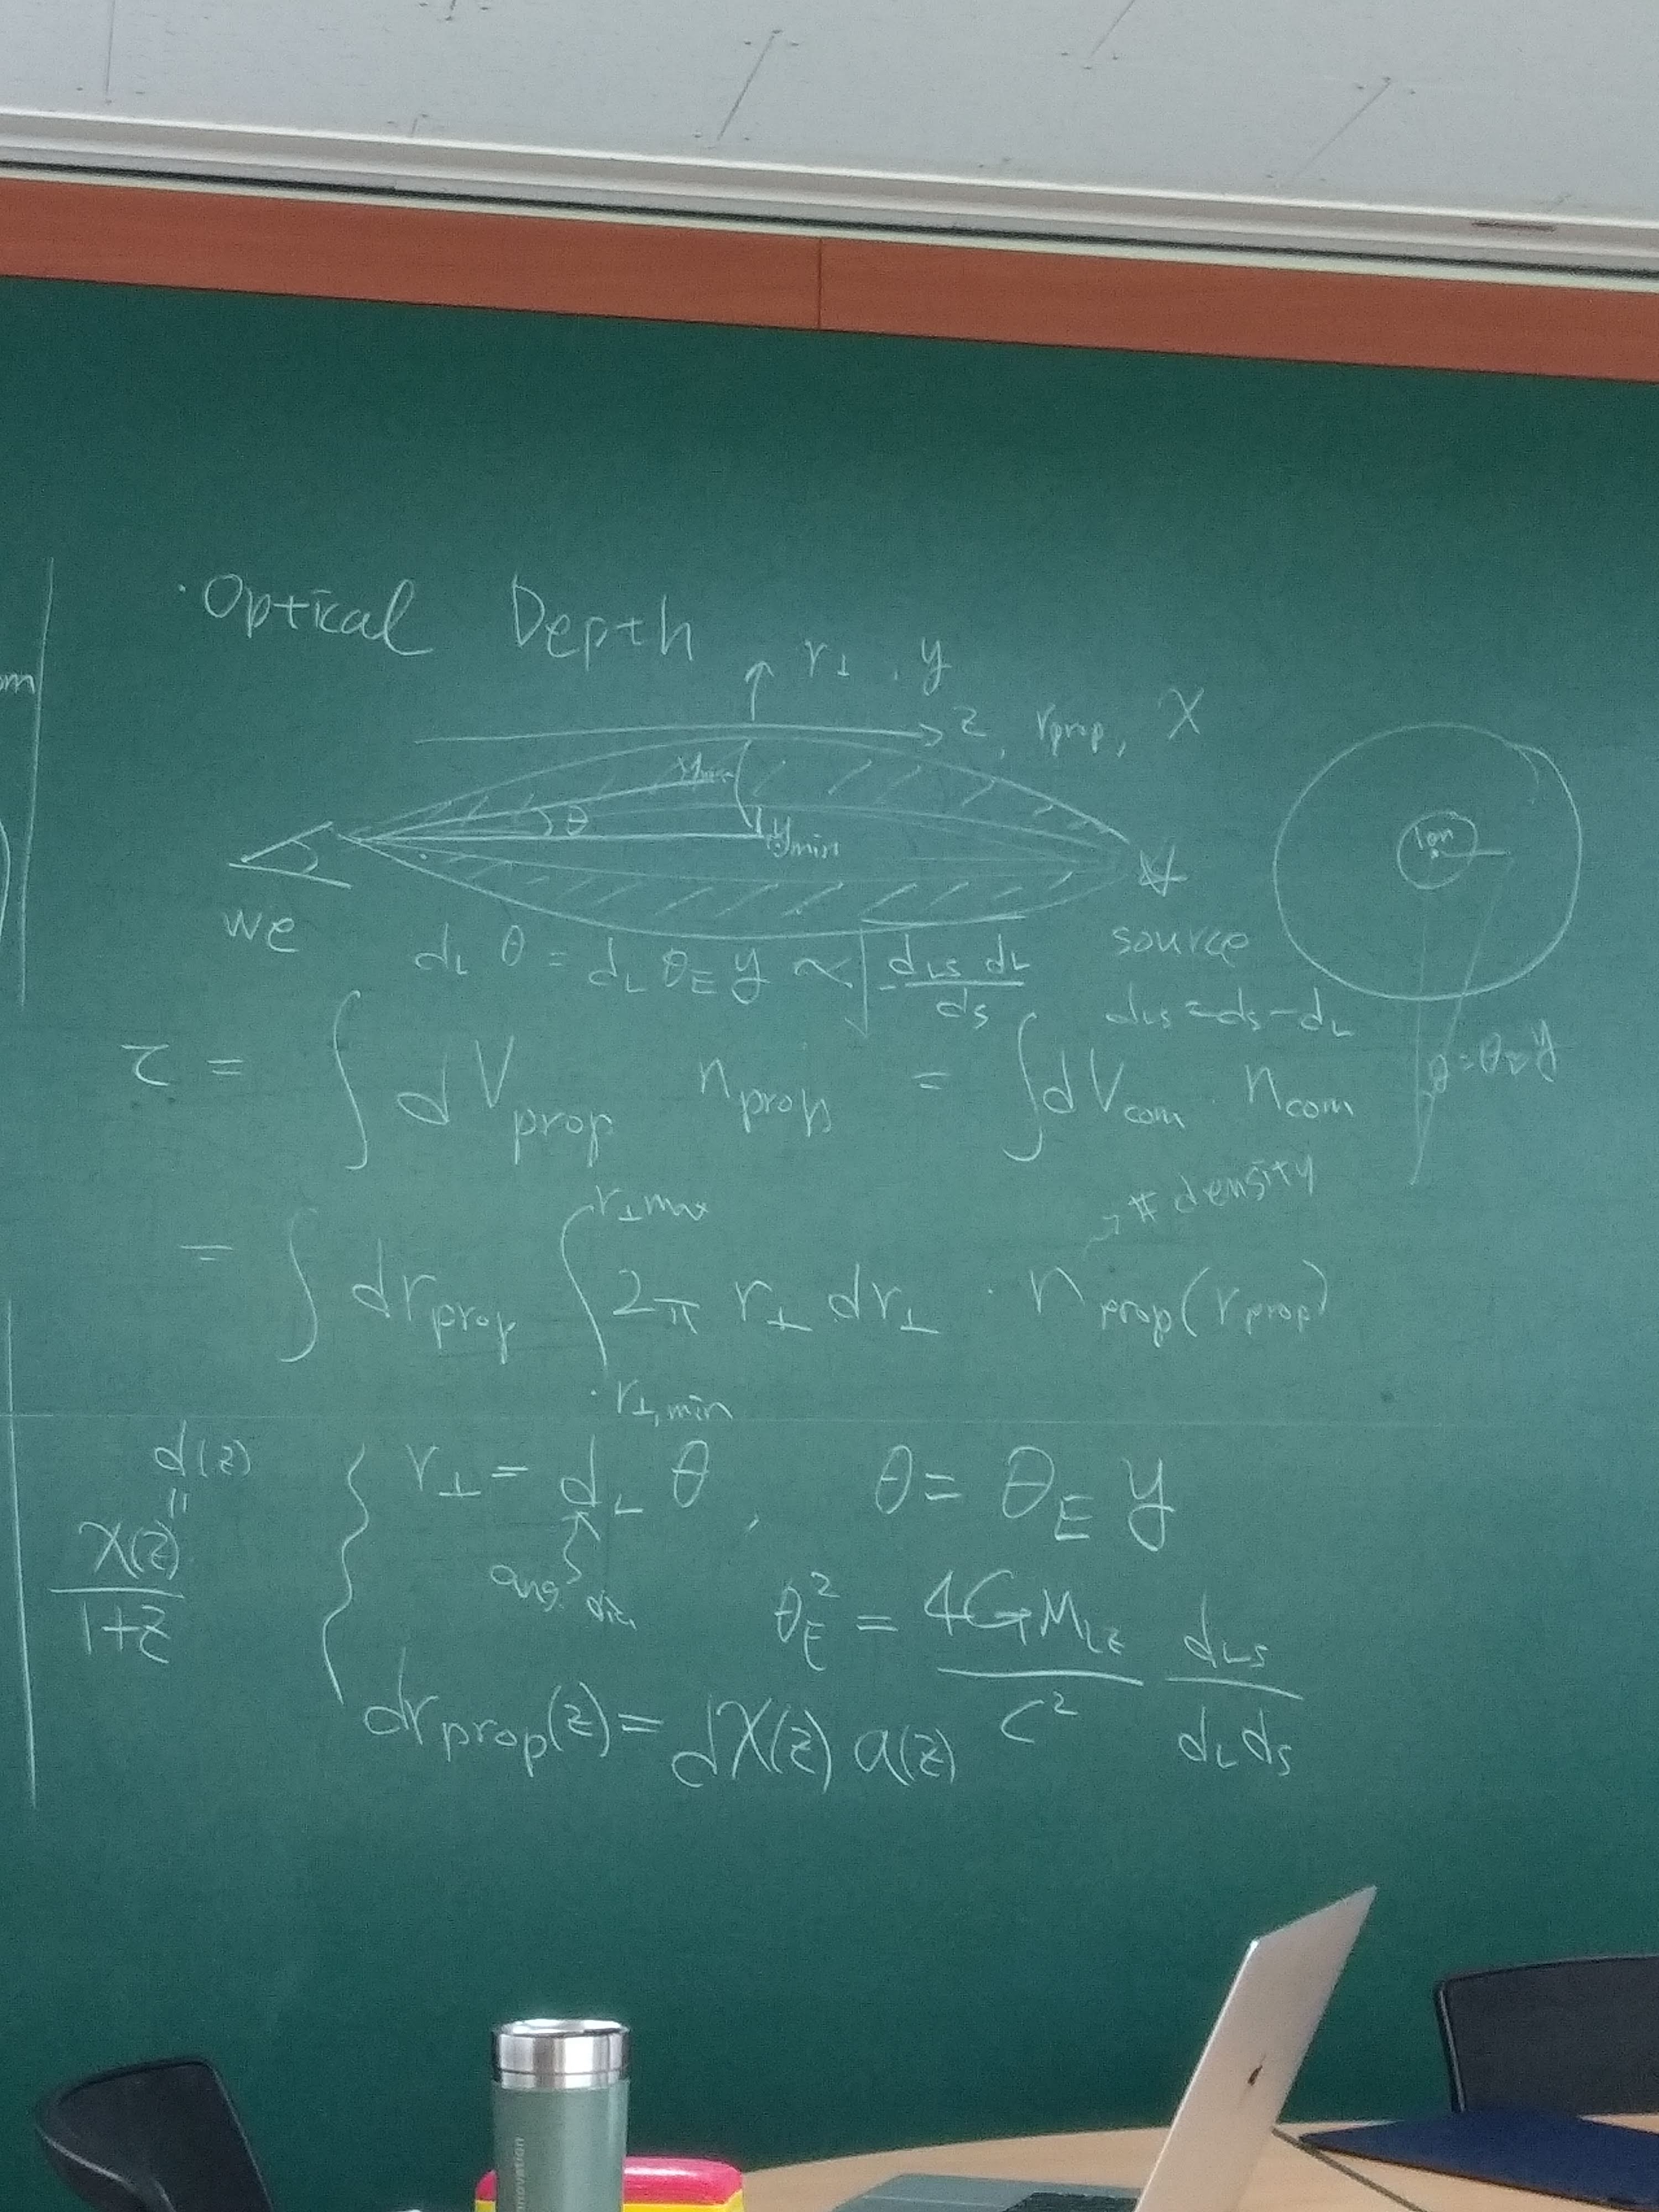 · Optical Depth
r⊥ , y
z , r_prop, χ
y_max
θ
y_min
1en
we
source
d_L θ = d_L θ_E y ∝ √(d_LS d_L / d_S)
d_LS = d_S - d_L
τ = ∫ dV_prop n_prop = ∫ dV_com · n_com
# density
= ∫ dr_prop ∫_{r⊥,min}^{r⊥max} 2π r⊥ dr⊥ · n_prop(r_prop)
d(z)
=
χ(z) / 1+z
r⊥ = d_L θ , θ = θ_E y
ang. dia
θ_E² = 4GM_LZ / c² d_LS / d_L d_S
dr_prop(z) = dχ(z) a(z)